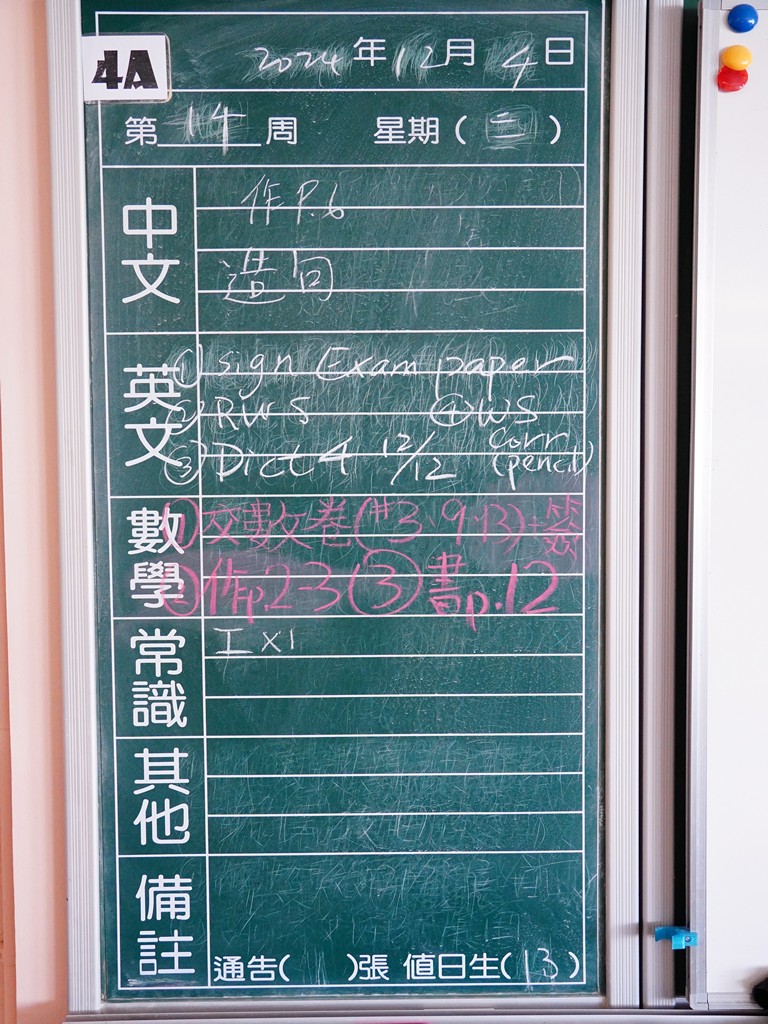 4A
2024年12月4日
第14周 星期(三)
中文
作P.6
造句
英文
① Sign Exam paper
② RWS ④ WS
③ Dict 4 12/12 corr (pencil)
數學
① 交數卷(#3、9、13)+簽
② 作p.2-3(③) 書p.12
常識
工x1
其他
備註
通告( )張 值日生(13)